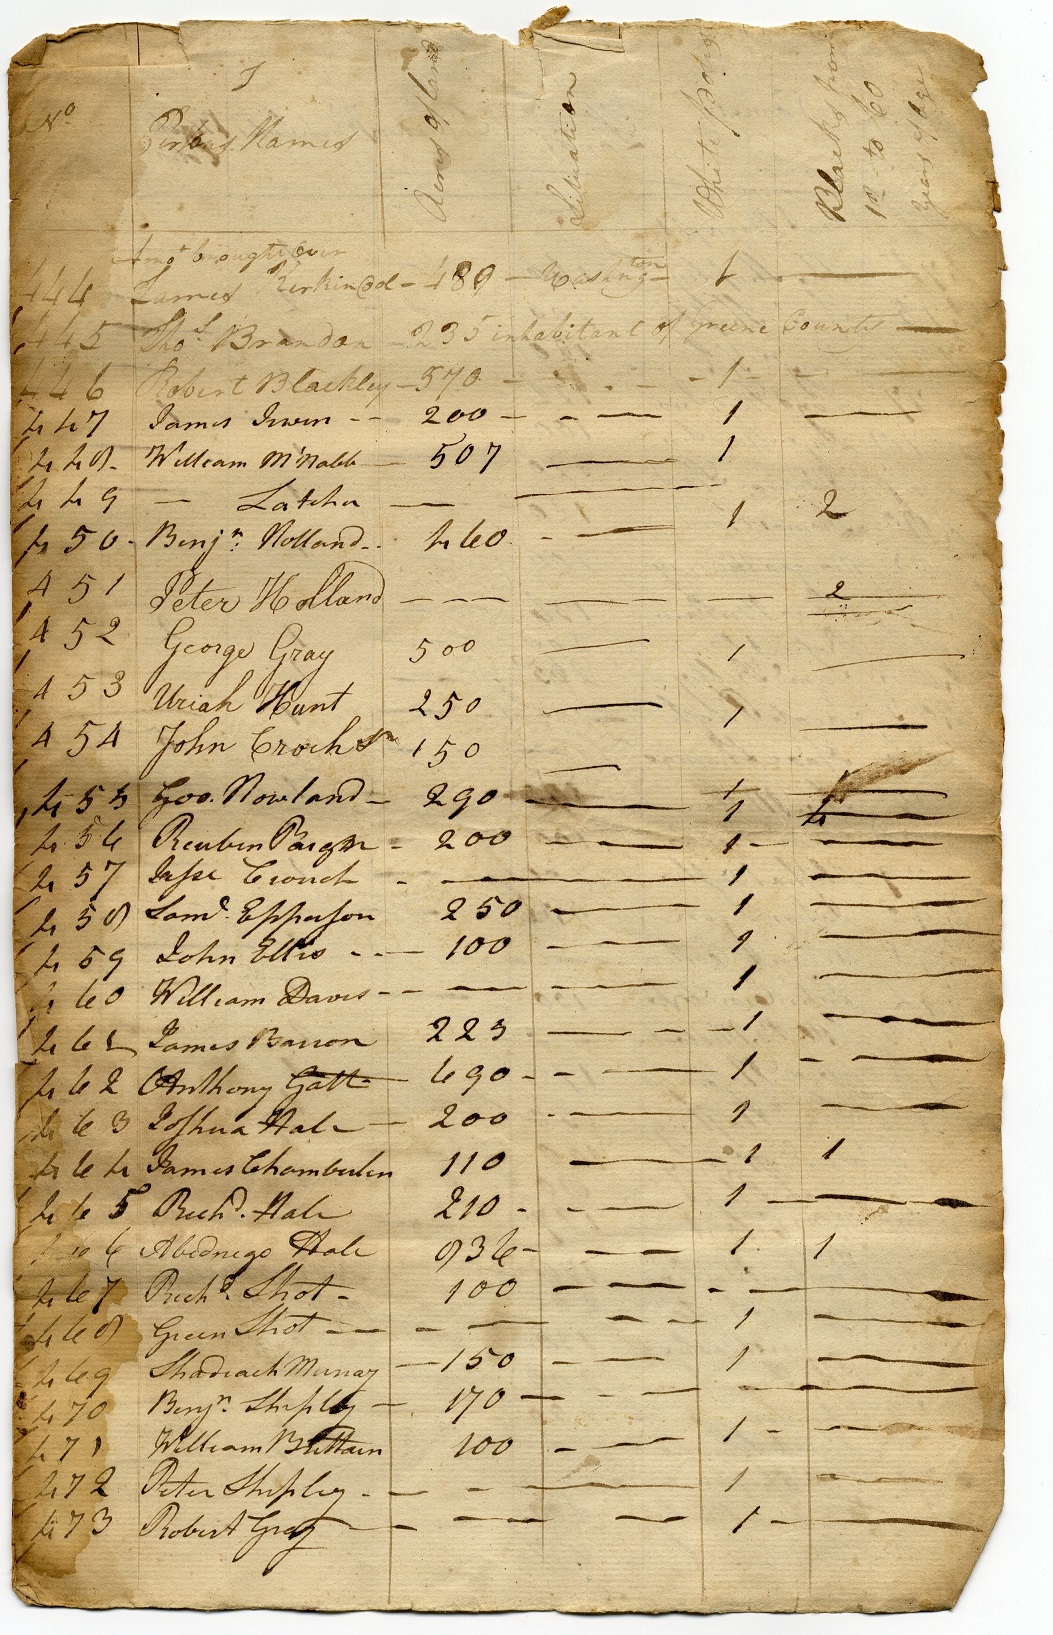 No Persons Names Acres of land Situation White poles Blacks from 12 to 60 years of age
Amot brought over
444 James Kirkindol - 489 - Wasington - 1 —
445 Thos Brandon 235 inhabitant of Greene County —
446 Robert Blackley - 570 - - - 1 - —
447 James Irwin - - 200 - - — 1 —
448 William McNabb — 507 — 1
449 — Latcher — — 1 2
450 Benjn Holland - - 460 - —
451 Peter Holland — — — — — 2 —
452 George Gray 500 — 1 —
453 Uriah Hunt 250 — 1 —
454 John Croch Sr 150 —
455 Geo. Nowland - 290 - — 1 4 —
456 Reuben - 200 - — 1 - —
457 Jesse Crouch - — 1 —
458 Saml. Epperson 250 — 1 —
459 John Ellis - - — 100 - — 1 —
460 William Davis - - — — 1 —
461 James Barron 223 — - - 1 —
462 Anthony Gott — 690 - - — 1 - —
463 Joshua Hale — 200 - — 1 - —
464 James Chamberlen 110 — 1 1
465 Richd. Hale 210 - - — 1 — —
466 Abednego Hale 836 - - — 1 1
467 Richd. Shot - 100 - — - - —
468 Green Shot - — - - - — 1 —
469 Shadrach Murray — 150 - — 1 —
470 Benjn. Shipley — 170 — - — - —
471 William Brittain 100 - — 1 - —
472 Peter Shipley - - - — 1 —
473 Robert Gray — - — - — 1 - —